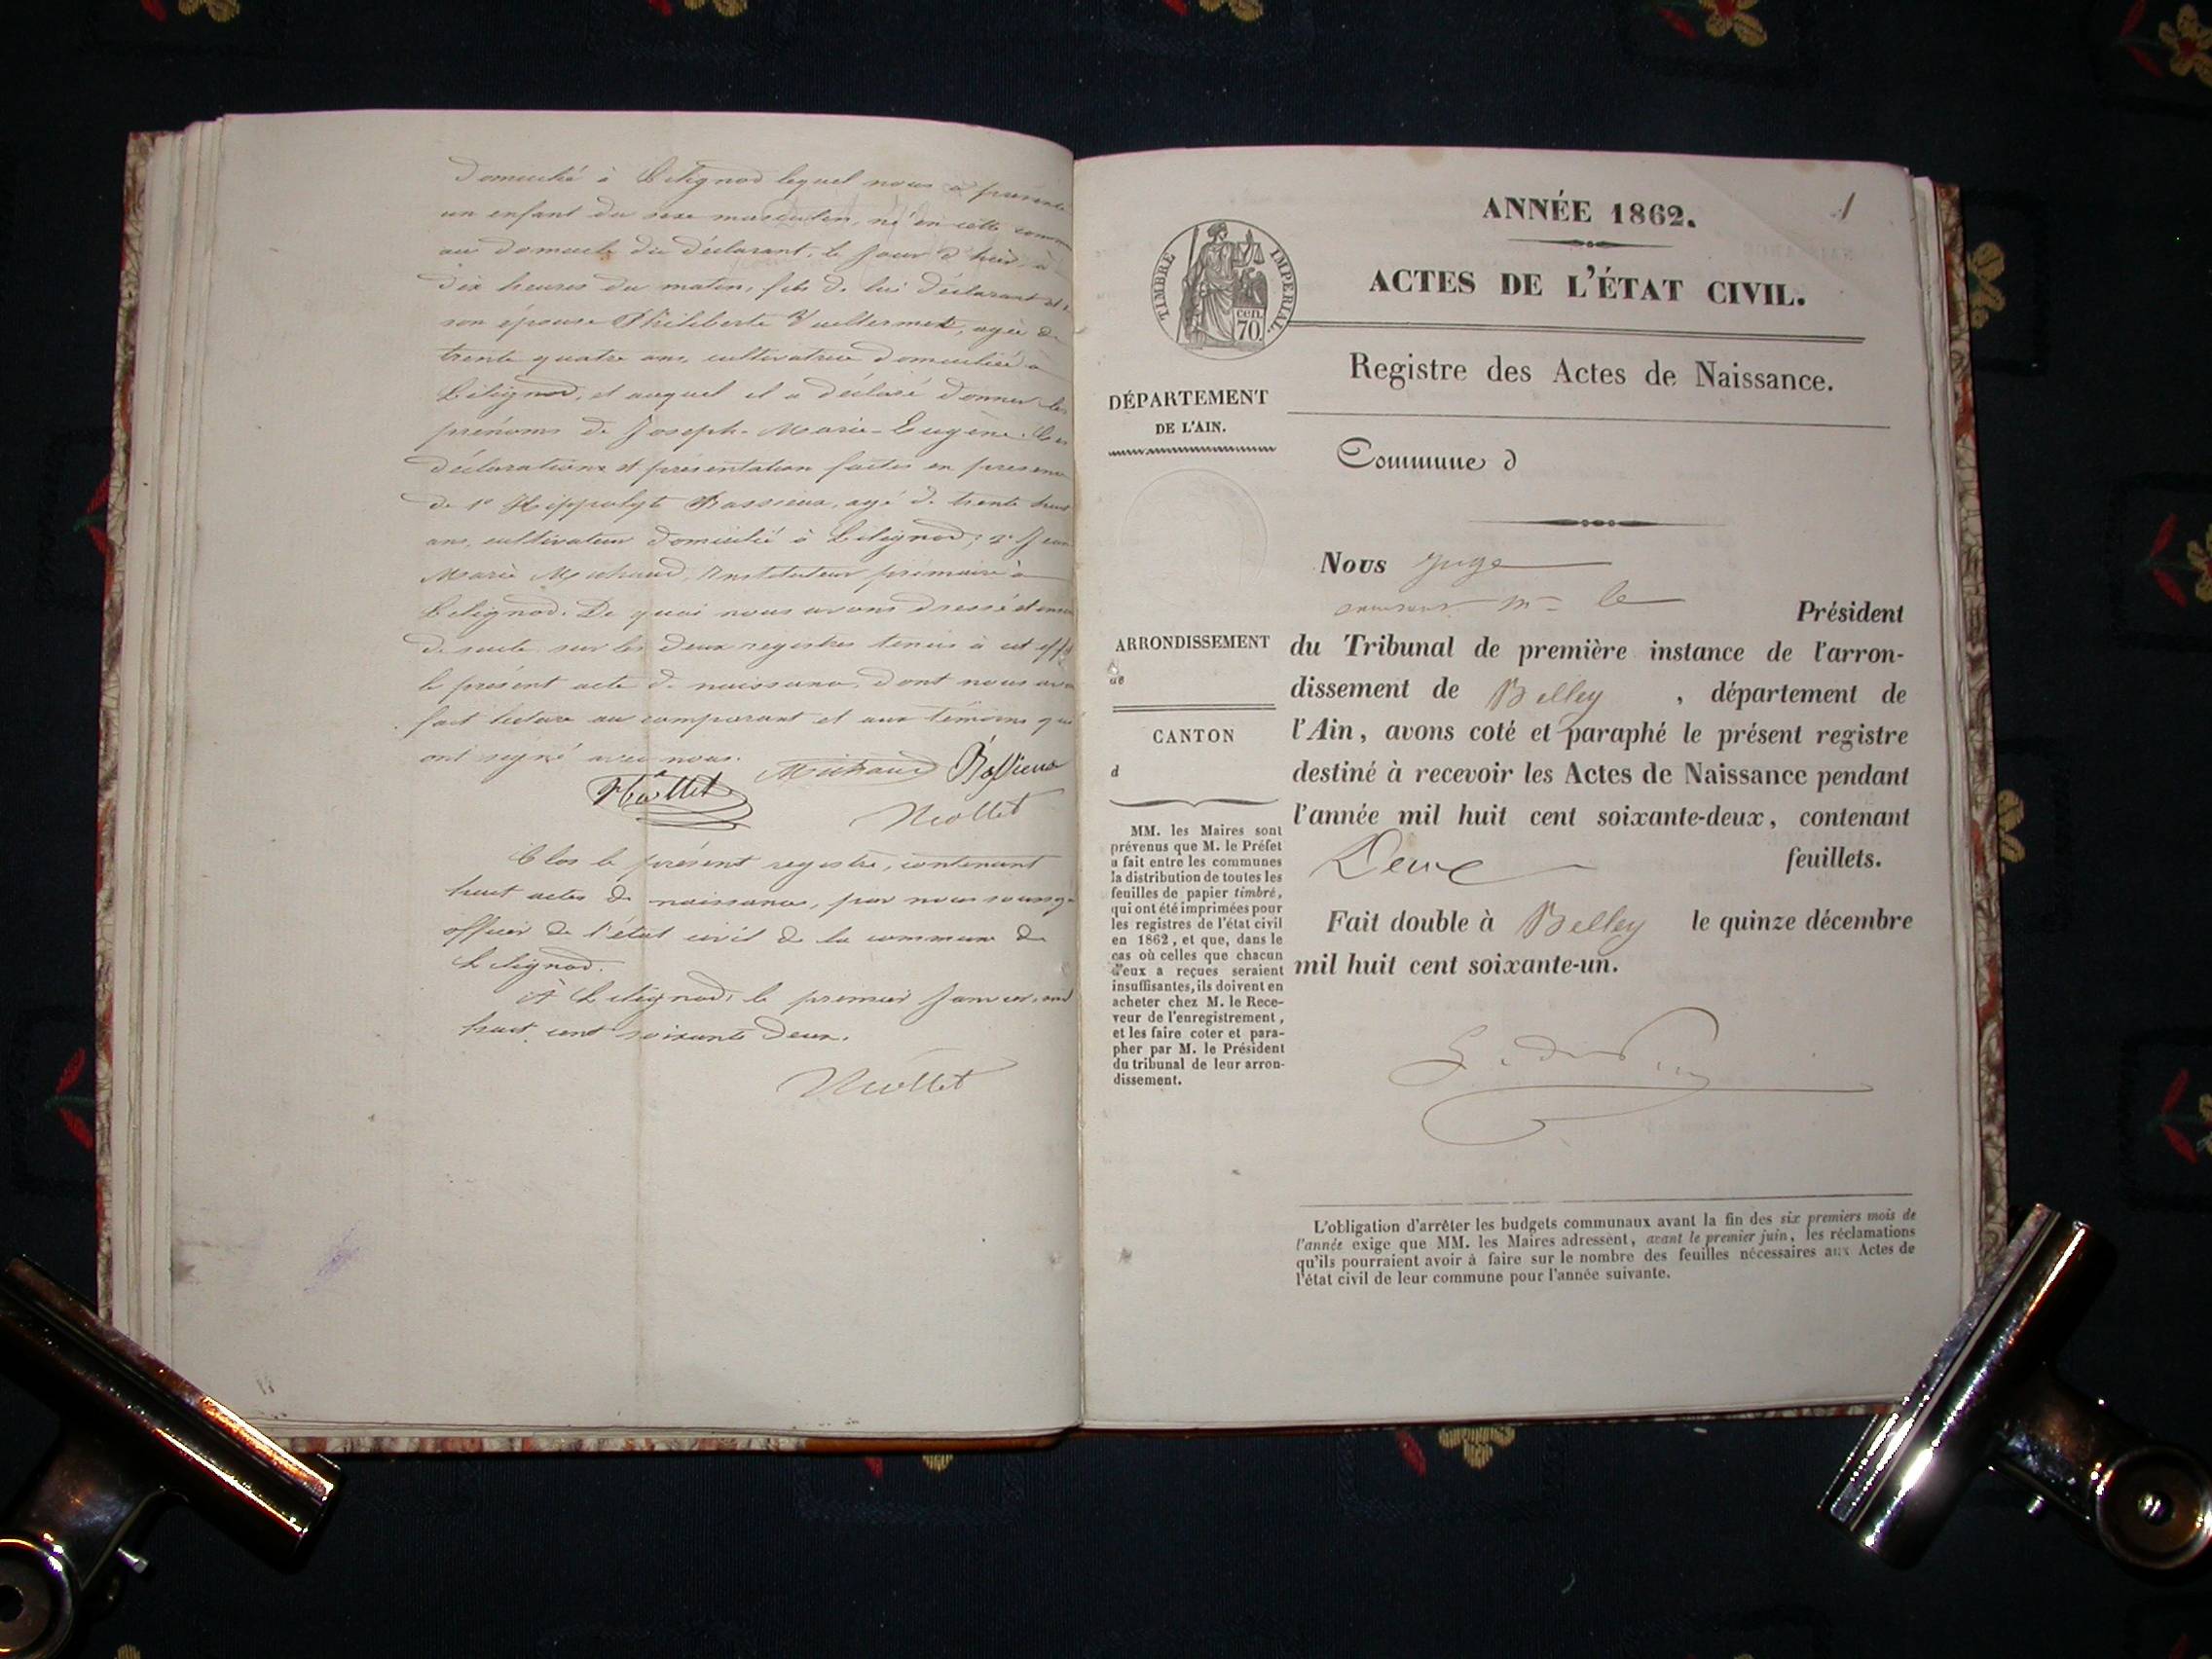 domicilié à Lilignod lequel nous a présenté
un enfant du sexe masculin, né en cette
au domicile du déclarant, le jour d'hier à
dix heures du matin, fils de lui déclarant et
son épouse Philiberte Vuillermet, agée de
trente quatre ans, cultivatrice domiciliée à
Lilignod, et auquel il a déclaré donner les
prénoms de Joseph-Marie-Eugène. Ces
déclarations et présentation faites en
de 1° Hippolyte Bassieux, agé de trente
ans, cultivateur domicilié à Lilignod; 2° Jean
Marie Michaud, Instituteur primaire à
Lilignod. De quoi nous avons dressé
de suite sur les deux registres tenus à cet
le présent acte de naissance, dont nous
fait lecture au comparant et aux témoins qui
ont signé avec nous.
Michaud Bassieux
Clos le présent registre, contenant
huit actes de naissance, par nous
officier de l'état civil de la commune de
Lilignod.
A Lilignod, le premier Janvier, mil
huit cent soixante deux.
1
ANNÉE 1862.
TIMBRE IMPERIAL
cen. 70.
ACTES DE L'ÉTAT CIVIL.
Registre des Actes de Naissance.
DÉPARTEMENT
DE L'AIN.
Commune d
Nous Juge
m le
Président
ARRONDISSEMENT
de
CANTON
d
du Tribunal de première instance de l'arron-
dissement de Belley , département de
l'Ain, avons coté et paraphé le présent registre
destiné à recevoir les Actes de Naissance pendant
l'année mil huit cent soixante-deux, contenant
Deux feuillets.
Fait double à Belley le quinze décembre
mil huit cent soixante-un.
MM. les Maires sont
prévenus que M. le Préfet
a fait entre les communes
la distribution de toutes les
feuilles de papier timbré,
qui ont été imprimées pour
les registres de l'état civil
en 1862, et que, dans le
cas où celles que chacun
d'eux a reçues seraient
insuffisantes, ils doivent en
acheter chez M. le Rece-
veur de l'enregistrement,
et les faire coter et para-
pher par M. le Président
du tribunal de leur arron-
dissement.
L'obligation d'arrêter les budgets communaux avant la fin des six premiers mois de
l'année exige que MM. les Maires adressent, avant le premier juin, les réclamations
qu'ils pourraient avoir à faire sur le nombre des feuilles nécessaires aux Actes de
l'état civil de leur commune pour l'année suivante.